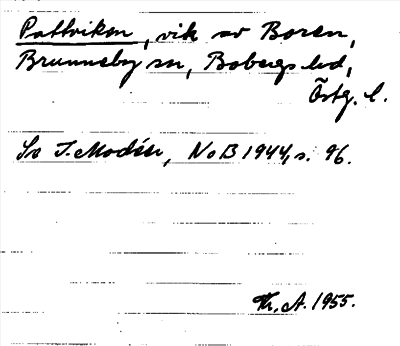 Pottviken, vik av Boren,
Brunneby sn, Bobergs hd,
Östg. l.
Se I. Modéer, NoB 1944, s. 96.
Th. A. 1955.